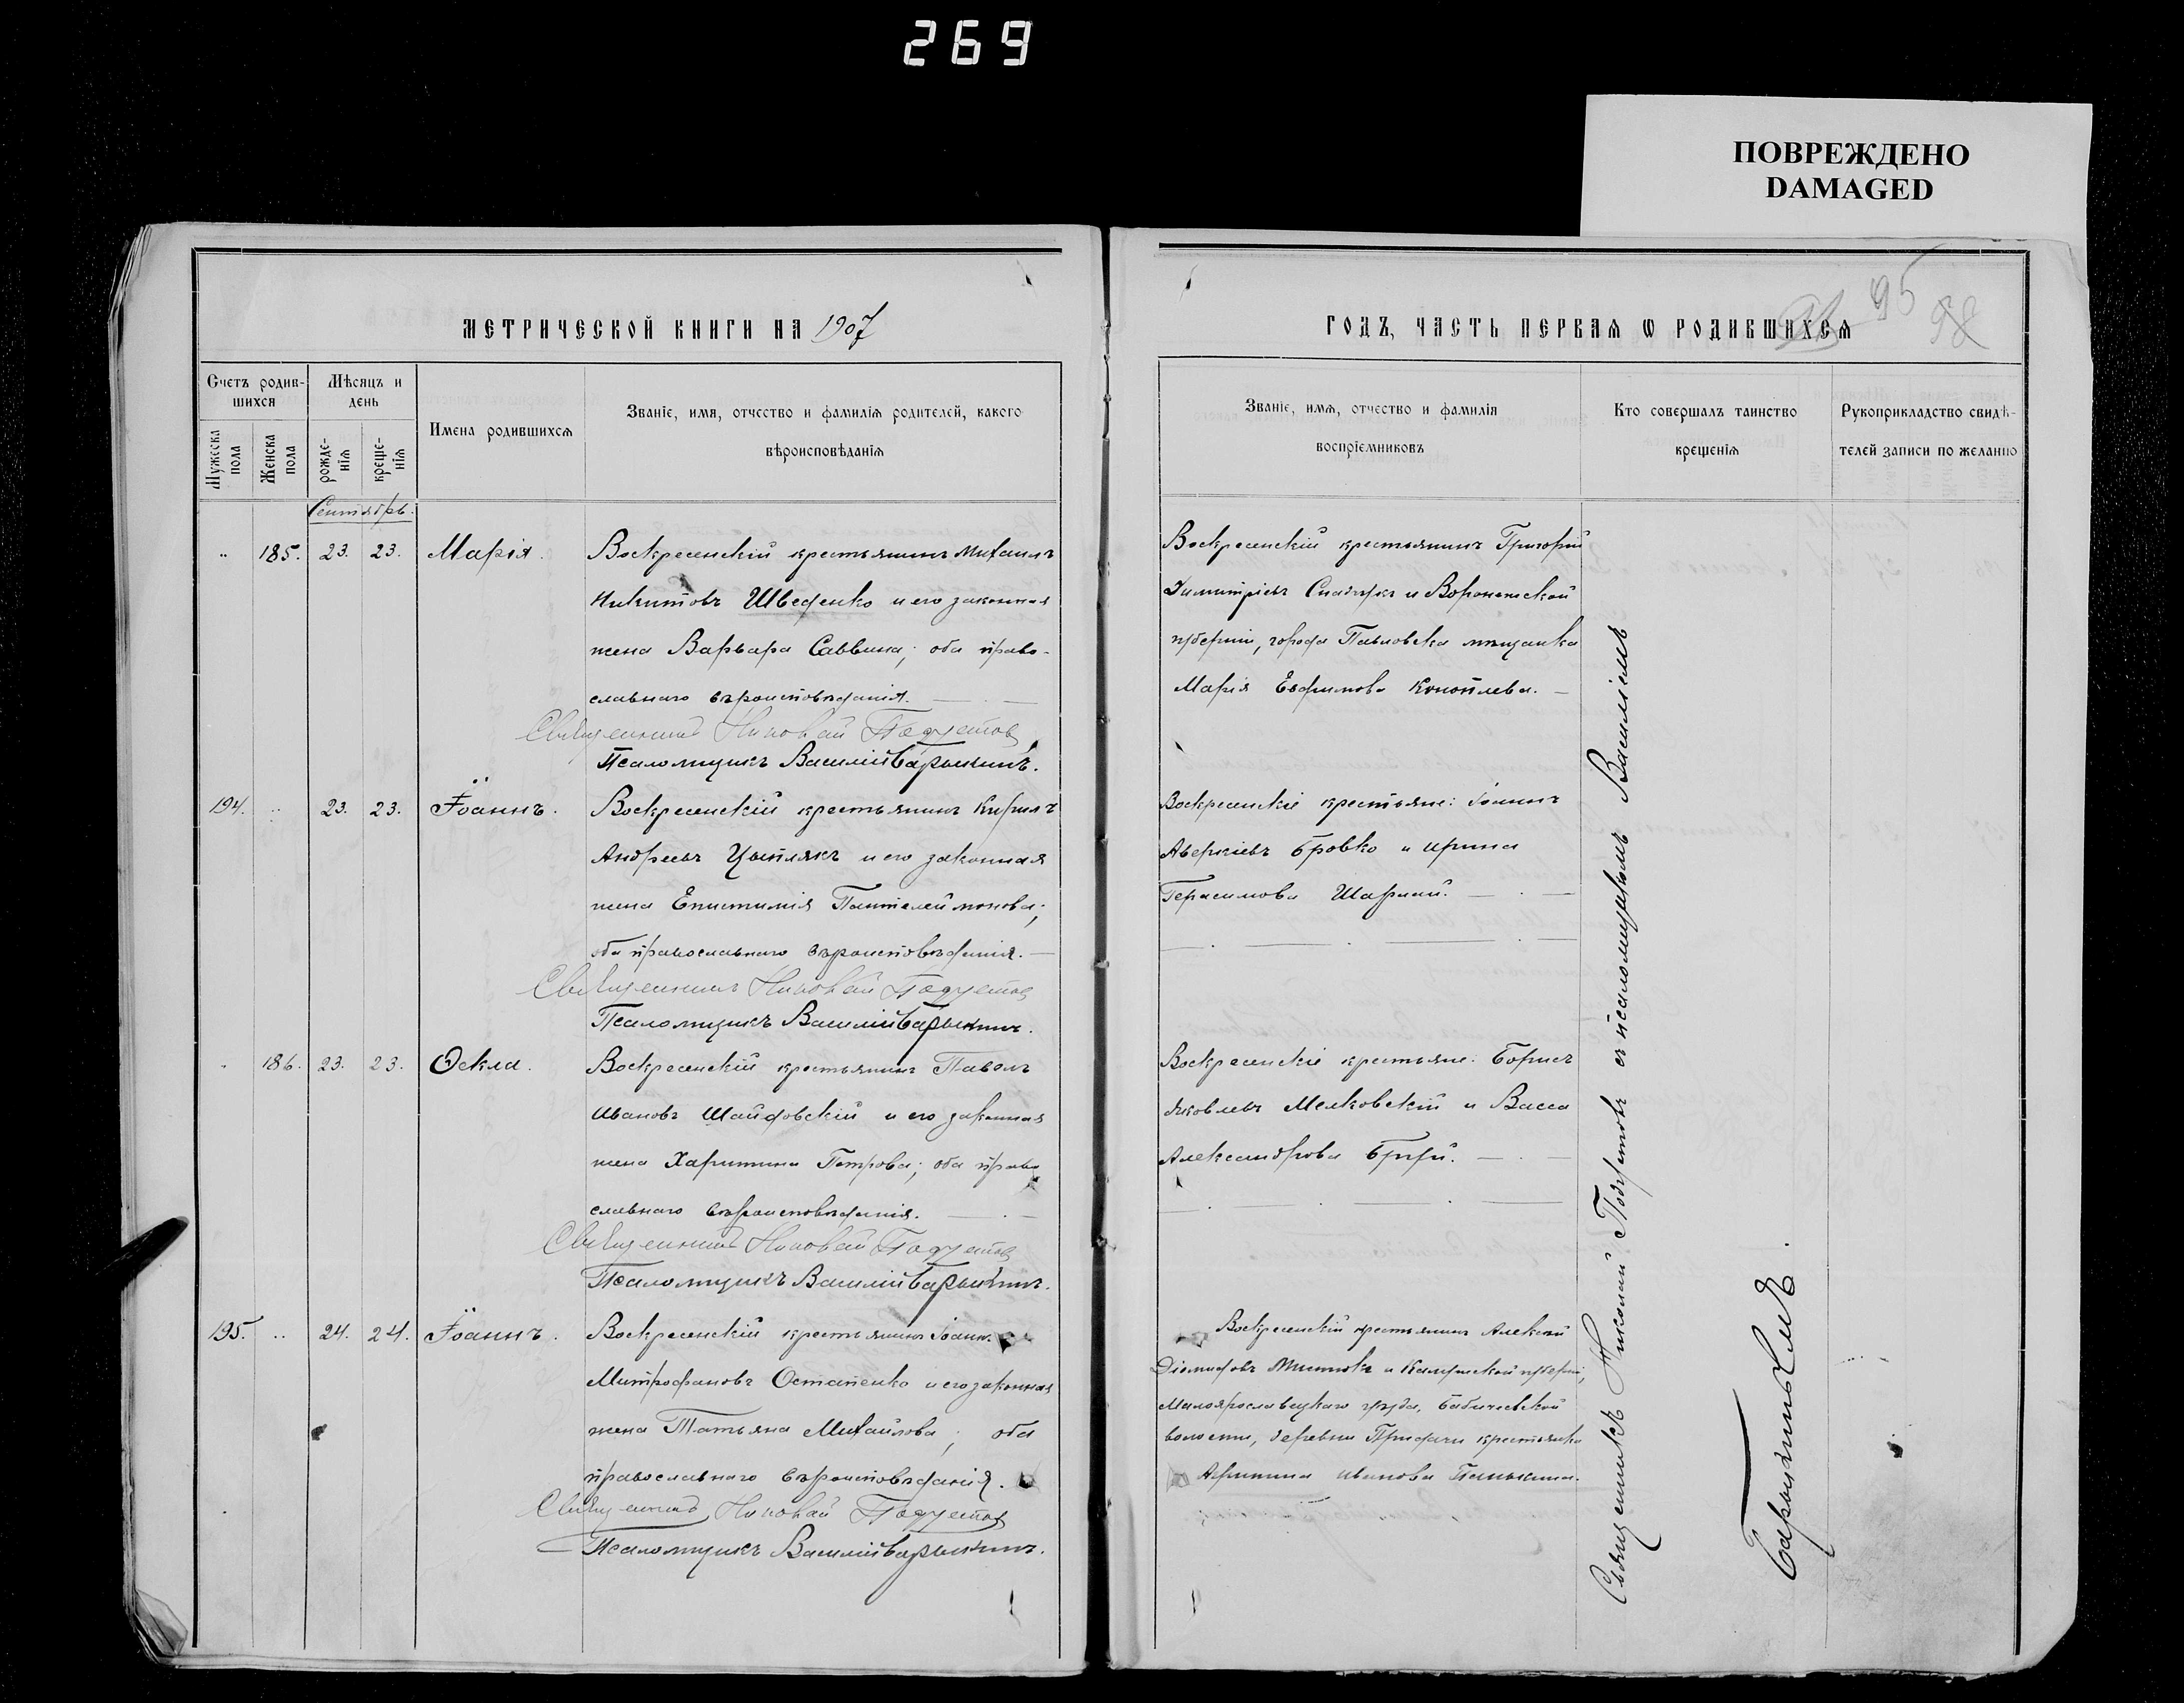 269
ПОВРЕЖДЕНО
DAMAGED
МЕТРИЧЕСКОЙ КНИГИ НА 1907
Счетъ родив-
шихся
Мѣсяцъ и
день
Имена родившихся
Званіе, имя, отчество и фамилія родителей, какого
вѣроисповѣданія
Мужеска
пола
Женска
пола
рожде-
нія
креще-
нія
Сентябрь.
185. 23. 23. Марія.
Воскресенскій крестьянинъ Михаилъ
Никитовъ Шведенко и его законная
жена Варвара Саввина; оба право-
славнаго вѣроисповѣданія.
Священникъ Николай Подуетов
Псаломщикъ Василій Барыкинъ.
194. 23. 23. Іоаннъ.
Воскресенскій крестьянинъ Кирилъ
Андреевъ Цыплякъ и его законная
жена Епистимія Пантелеймонова;
оба православнаго вѣроисповѣданія.
Священникъ Николай Подуетов
Псаломщикъ Василій Барыкинъ.
186. 23. 23. Ѳекла.
Воскресенскій крестьянинъ Павелъ
Ивановъ Шайдовскій и его законная
жена Харитина Петрова; оба право
славнаго вѣроисповѣданія.
Священникъ Николай Подуетов
Псаломщикъ Василій Барыкинъ.
195. 24. 24. Іоаннъ.
Воскресенскій крестьянинъ Іоаннъ
Митрофановъ Остапенко и его законная
жена Татьяна Михайлова; оба
православнаго вѣроисповѣданія.
Священникъ Николай Подуетов
Псаломщикъ Василій Барыкинъ.
95
98
ГОДЪ, ЧАСТЬ ПЕРВАЯ Ѡ РОДИВШИХСЯ
Званіе, имя, отчество и фамилія
воспріемниковъ
Кто совершалъ таинство
крещенія
Рукоприкладство свидѣ-
телей записи по желанію
Воскресенскій крестьянинъ Григорій
Димитріевъ и Воронежской
губерніи, города Павловска мѣщанка
Марія Евфимова Коноплева.
Воскресенскіе крестьяне: Іоаннъ
Аверкіевъ Бровко и Ирина
Герасимова Шарпай.
Воскресенскіе крестьяне: Борисъ
Яковлевъ Мелковскій и Васса
Александрова
Воскресенскій крестьянинъ Алексѣй
Діомидовъ и Калужской губерніи,
Малоярославецкаго уѣзда, Бабичевской
волости, деревни крестьянка
Агрипина Иванова Панькина.
Священникъ Николай Подуетовъ съ псаломщикомъ Василіемъ
Барыкинымъ.